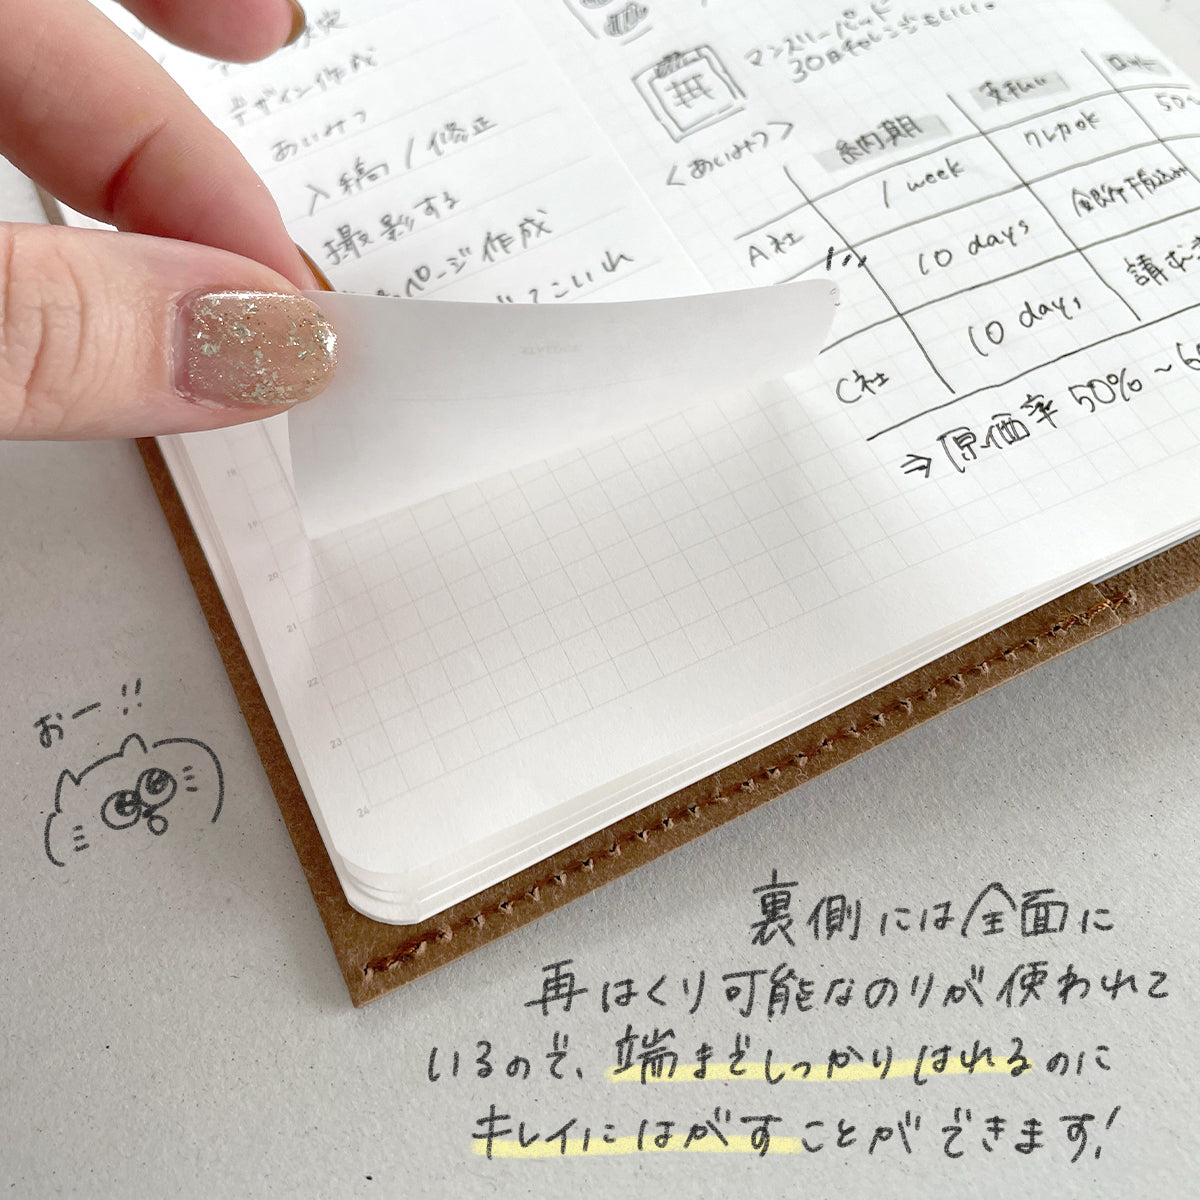 デザイン作成
あいみつ
入稿/修正
撮影する
ページ作成
マンスリーパッド
30日チャレンジも
<あいみつ>
案内期
支払い
1 week
クレカok
A社
10 days
銀行振込
10 days
C社
⇒原価率 50%~
18
19
20
21
22
23
24
おー!!
裏側には全面に
再はくり可能なのりが使われて
いるので、端までしっかりはれるのに
キレイにはがすことができます!